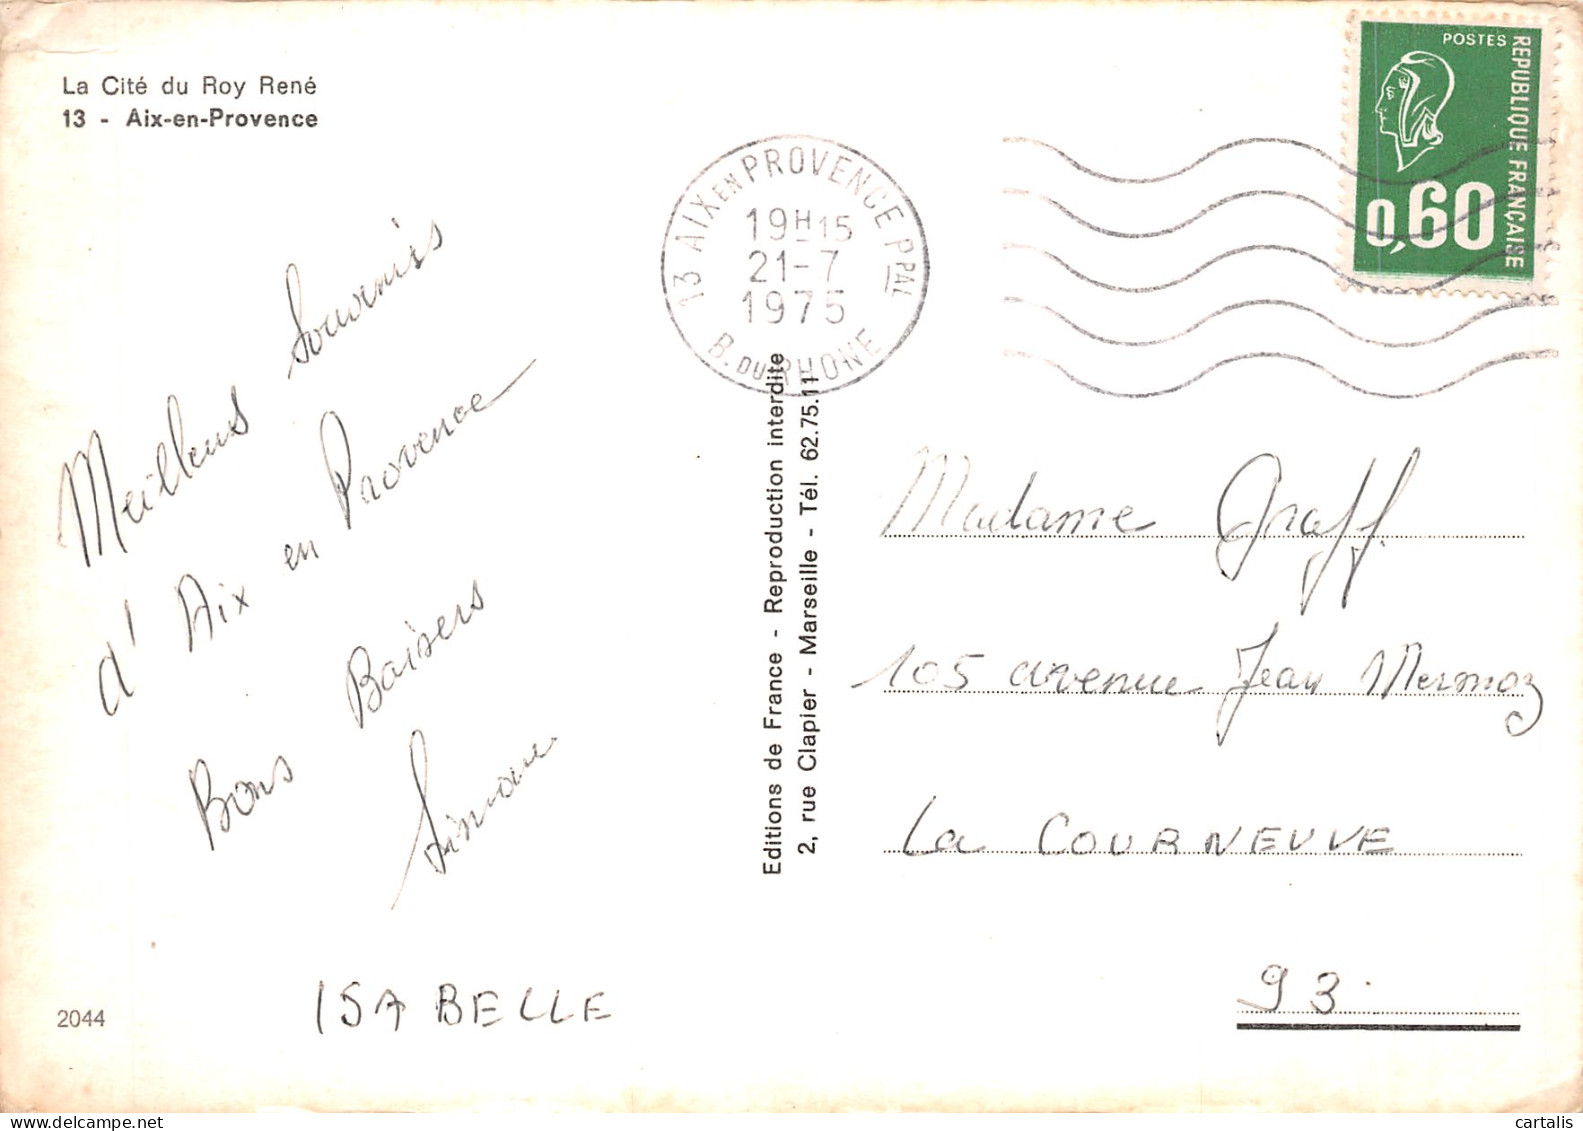 La Cité du Roy René
13 - Aix-en-Provence
13 AIX EN PROVENCE PPAL
19H15
21-7
1975
B. DU RHONE
POSTES
REPUBLIQUE FRANÇAISE
0,60
Meilleurs Souvenirs
d'Aix en Provence
Bons Baisers
Simone
ISABELLE
2044
Editions de France - Reproduction interdite
2, rue Clapier - Marseille - Tél. 62.75.11
Madame Graff.
105 avenue Jean Mermoz
La COURNEUVE
93.
cartalis